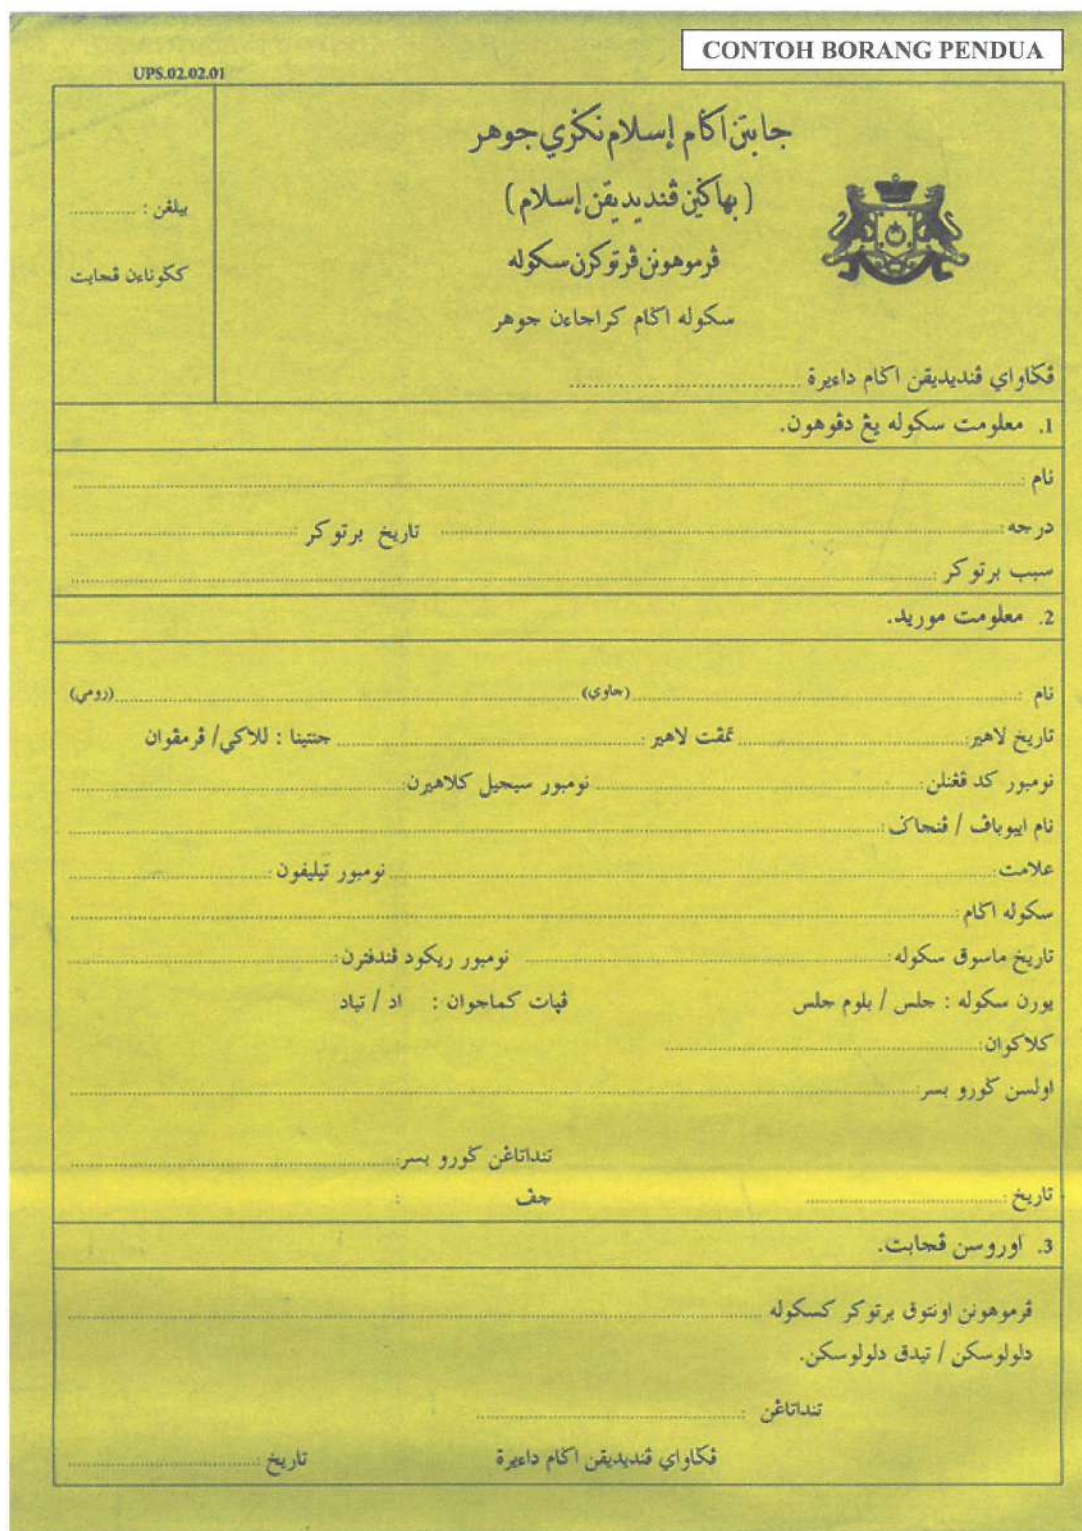 CONTOH BORANG PENDUA
UPS.02.02.01
جابتن اݢام إسلام نݢري جوهر
(بهاݢين ڤنديديقن إسلام)
ڤرموهونن ڤرتوكرن سكوله
سكوله اݢام كراجاءن جوهر
بيلڠن : ............
كݢوناءن ڤجابت
ڤݢاواي ڤنديديقن اݢام داءيرة ................................
1. معلومت سكوله يڠ دڤوهون.
نام : ................................
درجه : ................................ تاريخ برتوكر : ................................
سبب برتوكر : ................................
2. معلومت موريد.
نام : ................................ (جاوي) ................................ (رومي)
تاريخ لاهير: ................................ تمڤت لاهير : ................................ جنتينا : للاكي/ ڤرمڤوان
نومبور كد ڤڠنلن: ................................ نومبور سيجيل كلاهيرن: ................................
نام ايبوباڤ / ڤنجاݢ : ................................
علامت: ................................ نومبور تيليفون : ................................
سكوله اݢام : ................................
تاريخ ماسوق سكوله: ................................ نومبور ريكود ڤندفترن: ................................
يورن سكوله : جلس / بلوم جلس ڤيات كماجوان : اد / تياد
كلاكوان: ................................
اولسن ݢورو بسر: ................................
تنداتاڠن ݢورو بسر: ................................
تاريخ : ................................ چڤ :
3. اوروسن ڤجابت.
ڤرموهونن اونتوق برتوكر كسكوله ................................
دلولوسكن / تيدق دلولوسكن.
تنداتاڠن : ................................
ڤݢاواي ڤنديديقن اݢام داءيرة تاريخ : ................................